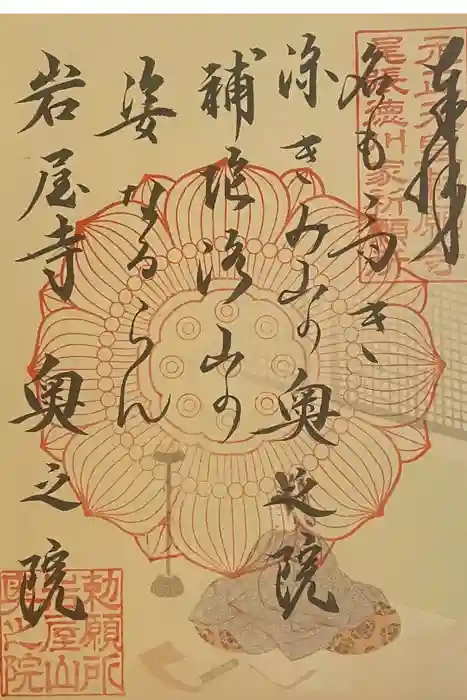 奉拝
元正天皇勅願寺
尾張徳川家祈願所
名も高き
深きみ山の奥之院
補陀洛山の
姿なるらん
岩屋寺 奥之院
勅願所
岩屋山
奥之院